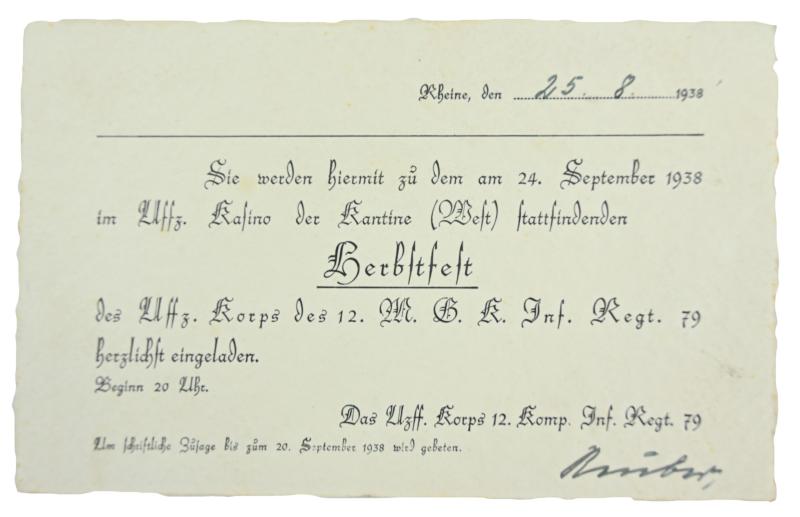 Rheine, den 25. 8. 1938
Sie werden hiermit zu dem am 24. September 1938
im Uffz. Kasino der Kantine (West) stattfindenden
Herbstfest
des Uffz. Korps des 12. M. G. K. Inf. Regt. 79
herzlichst eingeladen.
Beginn 20 Uhr.
Das Uzff. Korps 12. Komp. Inf. Regt. 79
Um schriftliche Zusage bis zum 20. September 1938 wird gebeten.